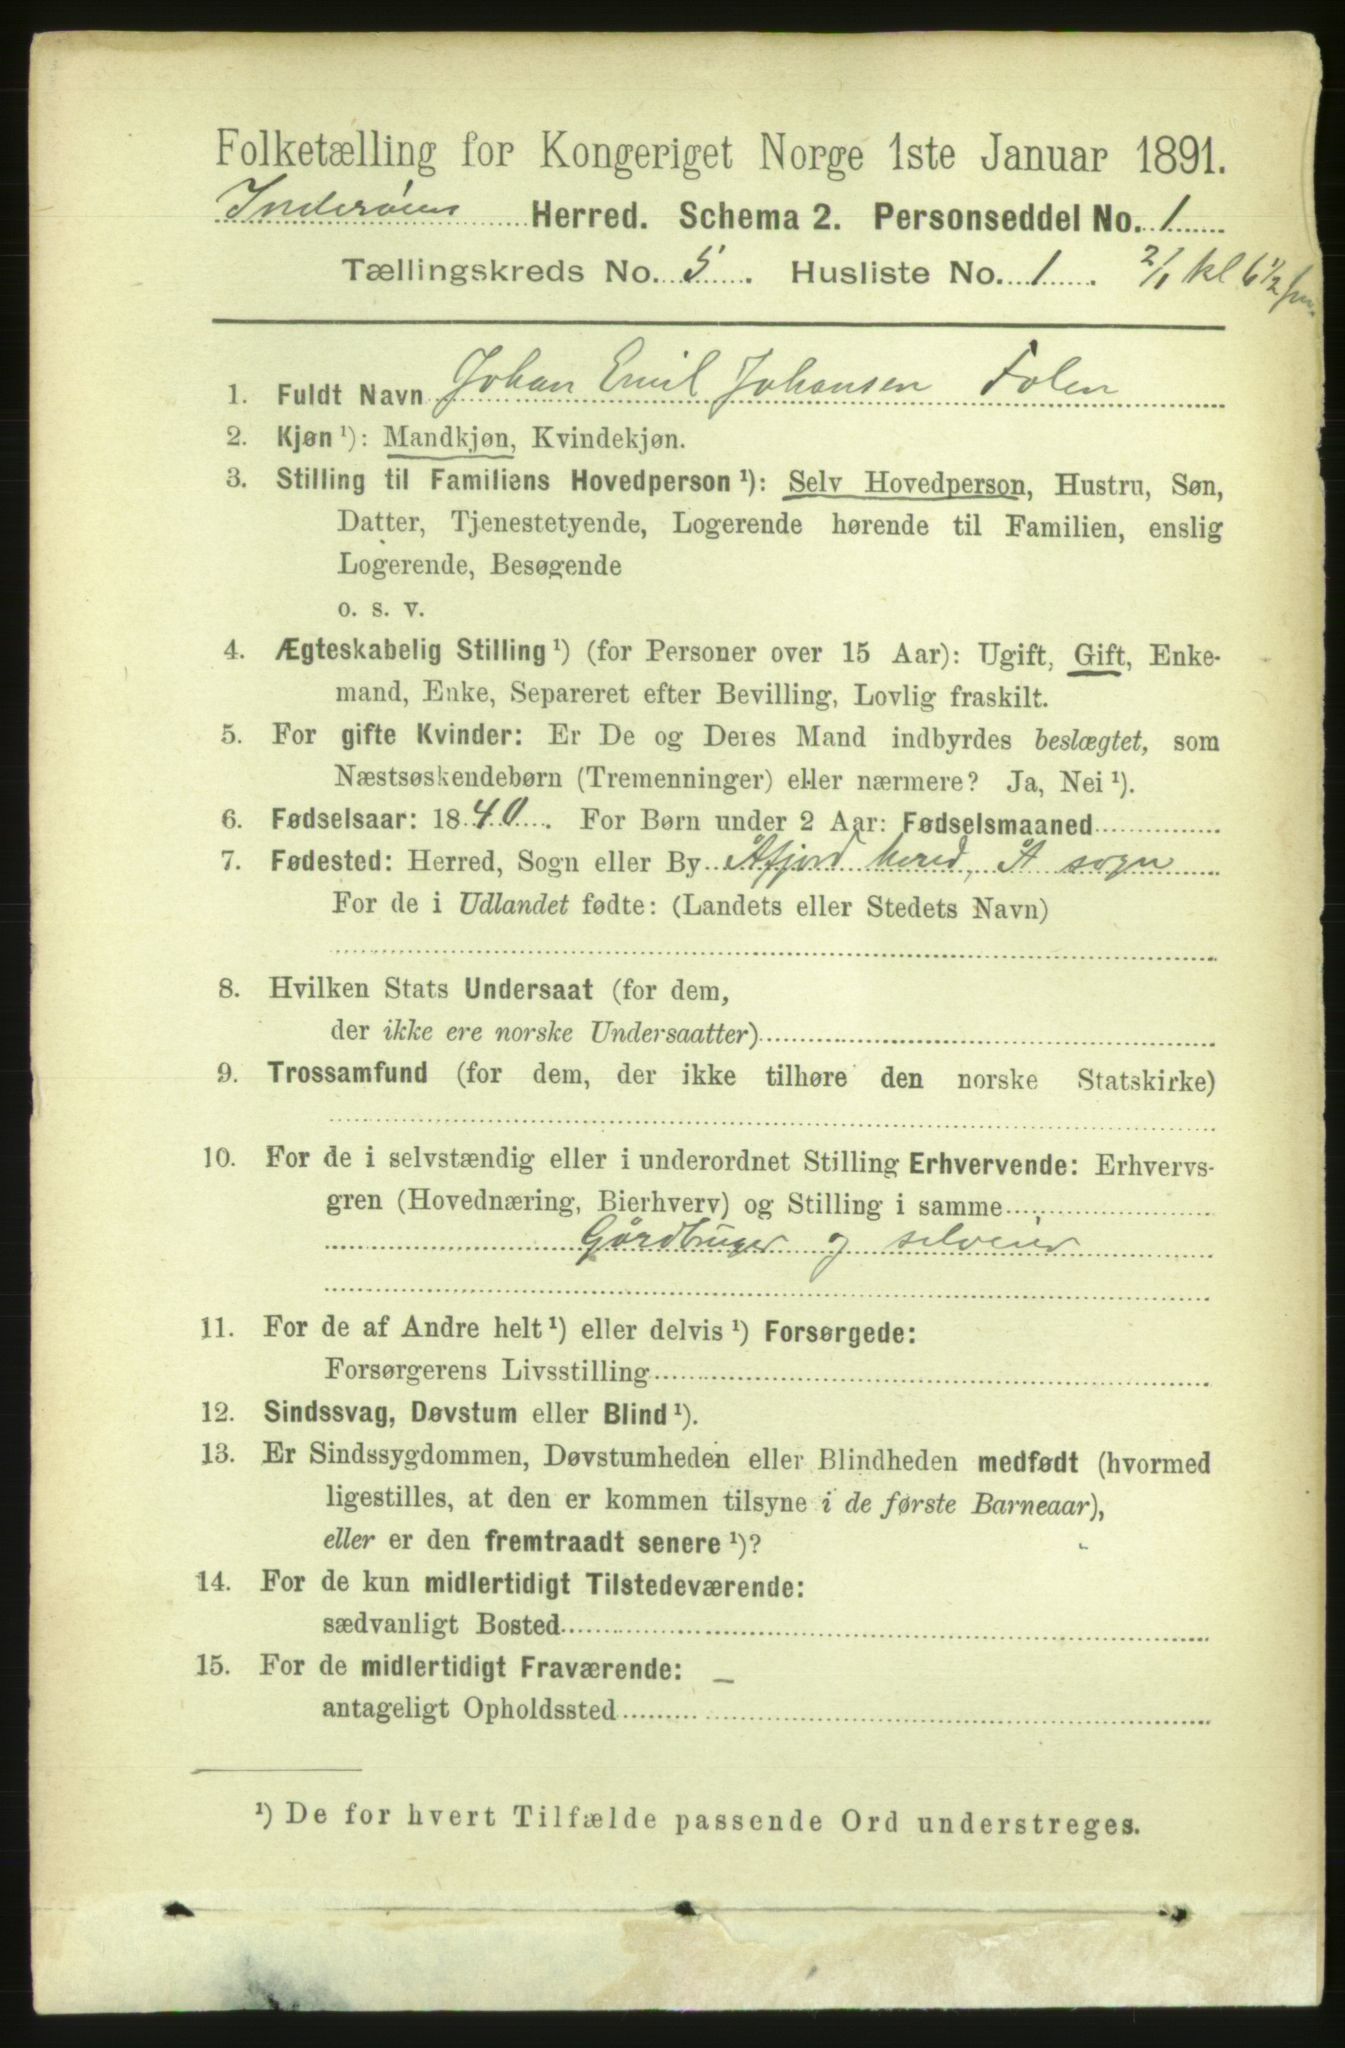 Folketælling for Kongeriget Norge 1ste Januar 1891.
Inderøens Herred. Schema 2. Personseddel No. 1
Tællingskreds No. 5. Husliste No. 1. 2/1 kl 6 1/2 fm.
1. Fuldt Navn Johan Emil Johansen Folen
2. Kjøn ¹): Mandkjøn, Kvindekjøn.
3. Stilling til Familiens Hovedperson ¹): Selv Hovedperson, Hustru, Søn,
Datter, Tjenestetyende, Logerende hørende til Familien, enslig
Logerende, Besøgende
o. s. v.
4. Ægteskabelig Stilling ¹) (for Personer over 15 Aar): Ugift, Gift, Enke-
mand, Enke, Separeret efter Bevilling, Lovlig fraskilt.
5. For gifte Kvinder: Er De og Deres Mand indbyrdes beslægtet, som
Næstsøskendebørn (Tremenninger) eller nærmere? Ja, Nei ¹).
6. Fødselsaar: 1840. For Børn under 2 Aar: Fødselsmaaned
7. Fødested: Herred, Sogn eller By Åfjord hered, Å sogn
For de i Udlandet fødte: (Landets eller Stedets Navn)
8. Hvilken Stats Undersaat (for dem,
der ikke ere norske Undersaatter)
9. Trossamfund (for dem, der ikke tilhøre den norske Statskirke)
10. For de i selvstændig eller i underordnet Stilling Erhvervende: Erhvervs-
gren (Hovednæring, Bierhverv) og Stilling i samme
Gårdbruger og selveier
11. For de af Andre helt ¹) eller delvis ¹) Forsørgede:
Forsørgerens Livsstilling
12. Sindssvag, Døvstum eller Blind ¹).
13. Er Sindssygdommen, Døvstumheden eller Blindheden medfødt (hvormed
ligestilles, at den er kommen tilsyne i de første Barneaar),
eller er den fremtraadt senere ¹)?
14. For de kun midlertidigt Tilstedeværende:
sædvanligt Bosted
15. For de midlertidigt Fraværende: –
antageligt Opholdssted
¹) De for hvert Tilfælde passende Ord understreges.